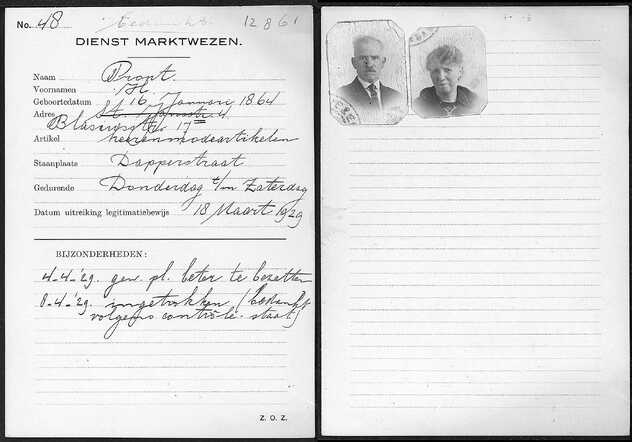 No. 48 Bedankt. 12861
DIENST MARKTWEZEN.
Naam Propt.
Voornamen H.
Geboortedatum 16 Januari 1864
Adres St. Jansstr. 4
Blasiusstr. 17
Artikel heerenmodeartikelen
Staanplaats Dapperstraat
Gedurende Donderdag t/m Zaterdag
Datum uitreiking legitimatiebewijs 18 Maart 1929
BIJZONDERHEDEN:
4-4-'29. gew. pl. beter te bezetten
8-4-'29. ingetrokken (bedankt
volgens contrôle-staat)
Z. O. Z.